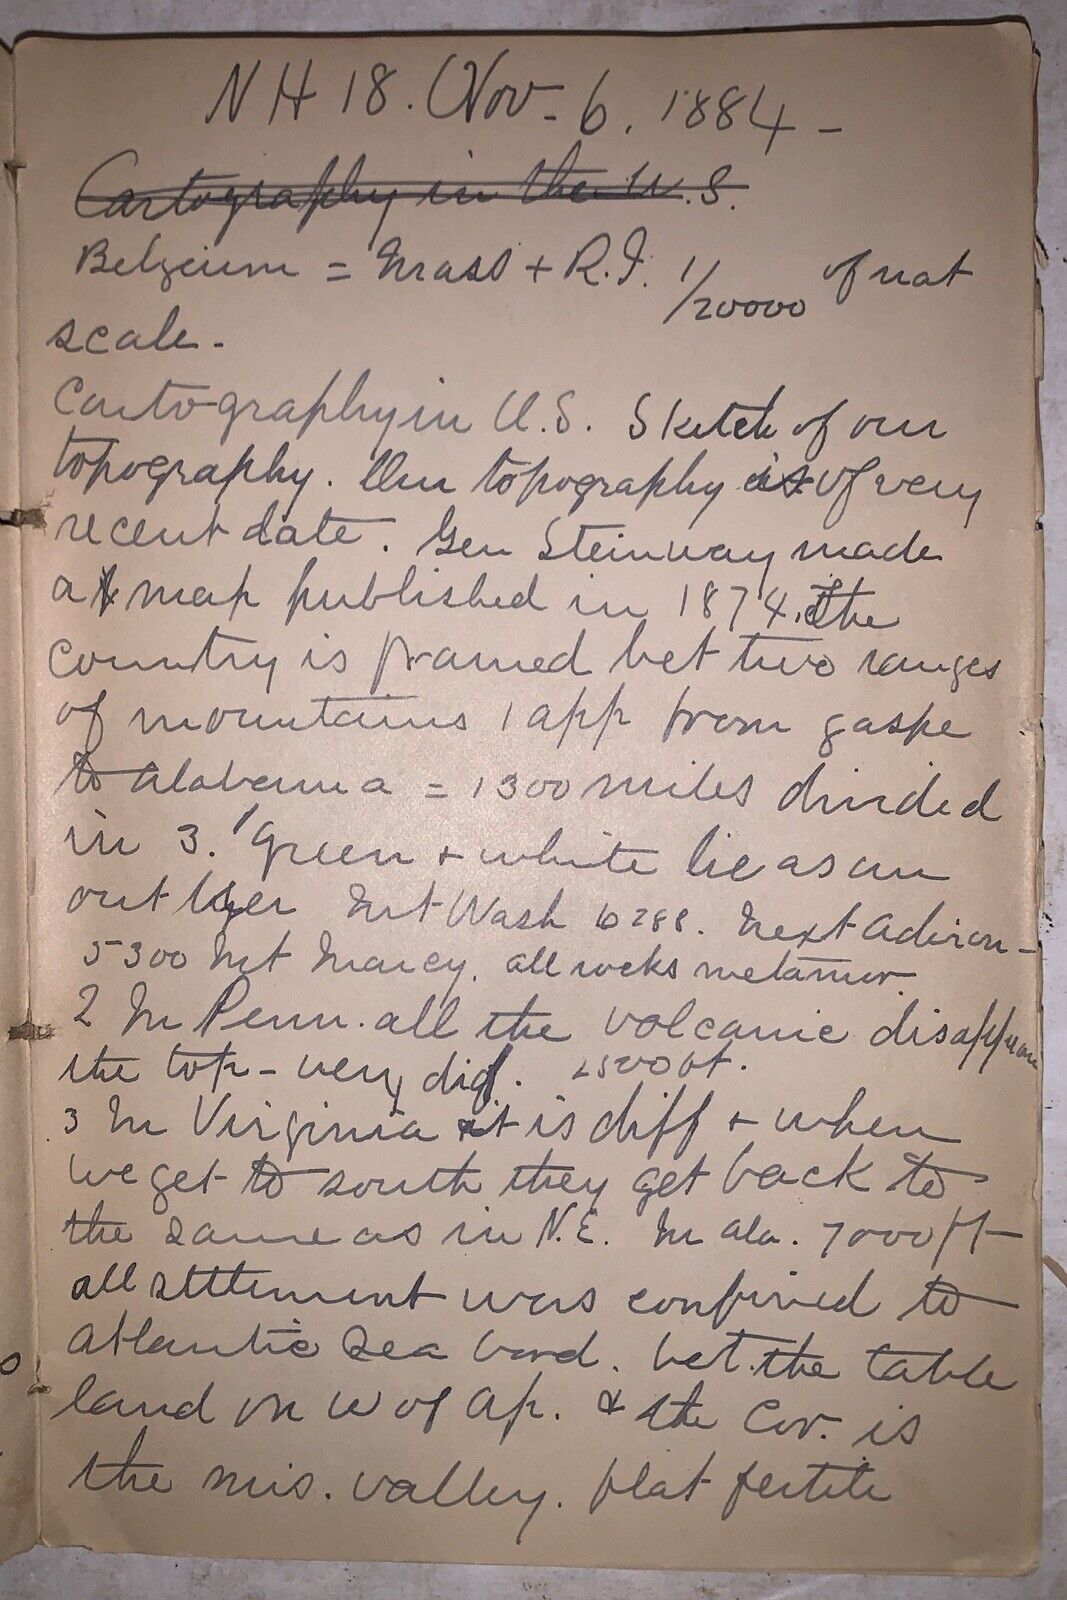 NH 18. Nov- 6. 1884 -
Cartography in the U.S.
Belgium = Mass + R.I. 1/20000 of nat
scale-
Cartography in U.S. Sketch of our
topography. Our topography is of very
recent date. Gen Steinway made
a map published in 1874. The
country is framed bet two ranges
of mountains 1 app from gaspe
to Alabama = 1300 miles divided
in 3. 1 Green + white lie as an
out lyer Mt Wash 6288. Next Adiron-
5300 Mt Marcy. all rocks metamor.
2 In Penn. all the volcanic disappear
the top- very dif. 2500 ft.
3 In Virginia it is diff + when
we get to south they get back to
the same as in N.E. In ala. 7000 ft
all settlement was confined to
atlantic Sea bord. bet. the table
land on W of Ap. & the Cor. is
the mis. valley. flat fertile